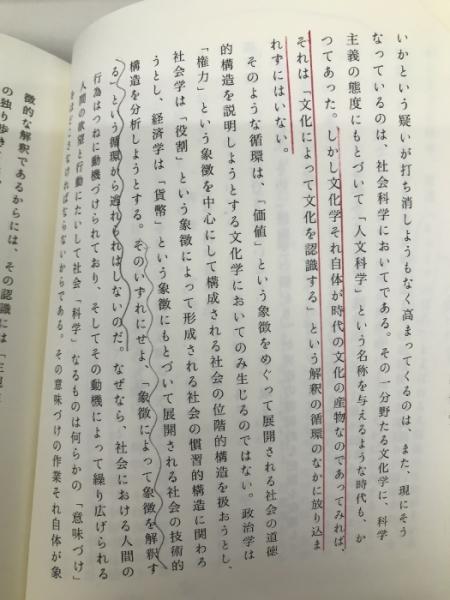 いかという疑いが打ち消しようもなく高まってくるのは、また、現にそう
なっているのは、社会科学においてである。その一分野たる文化学に、科学
主義の態度にもとづいて「人文科学」という名称を与えるような時代も、か
つてあった。しかし文化学それ自体が時代の文化の産物なのであってみれば、
それは「文化によって文化を認識する」という解釈の循環のなかに放り込ま
れずにはいない。
そのような循環は、「価値」という象徴をめぐって展開される社会の道徳
的構造を説明しようとする文化学においてのみ生じるのではない。政治学は
「権力」という象徴を中心にして構成される社会の位階的構造を扱おうとし、
社会学は「役割」という象徴によって形成される社会の慣習的構造に関わろ
うとし、経済学は「貨幣」という象徴にもとづいて展開される社会の技術的
構造を分析しようとする。そのいずれにせよ、「象徴によって象徴を解釈す
る」という循環から逃れもれはしないのだ。なぜなら、社会における人間の
行為はつねに動機づけられており、そしてその動機によって繰り広げられる
人間の欲望と行動にたいして社会「科学」なるものは何らかの「意味づけ」
をほどこさなければならないからである。その意味づけの作業それ自体が象
徴的な解釈であるからには、その認識には
の独り歩き